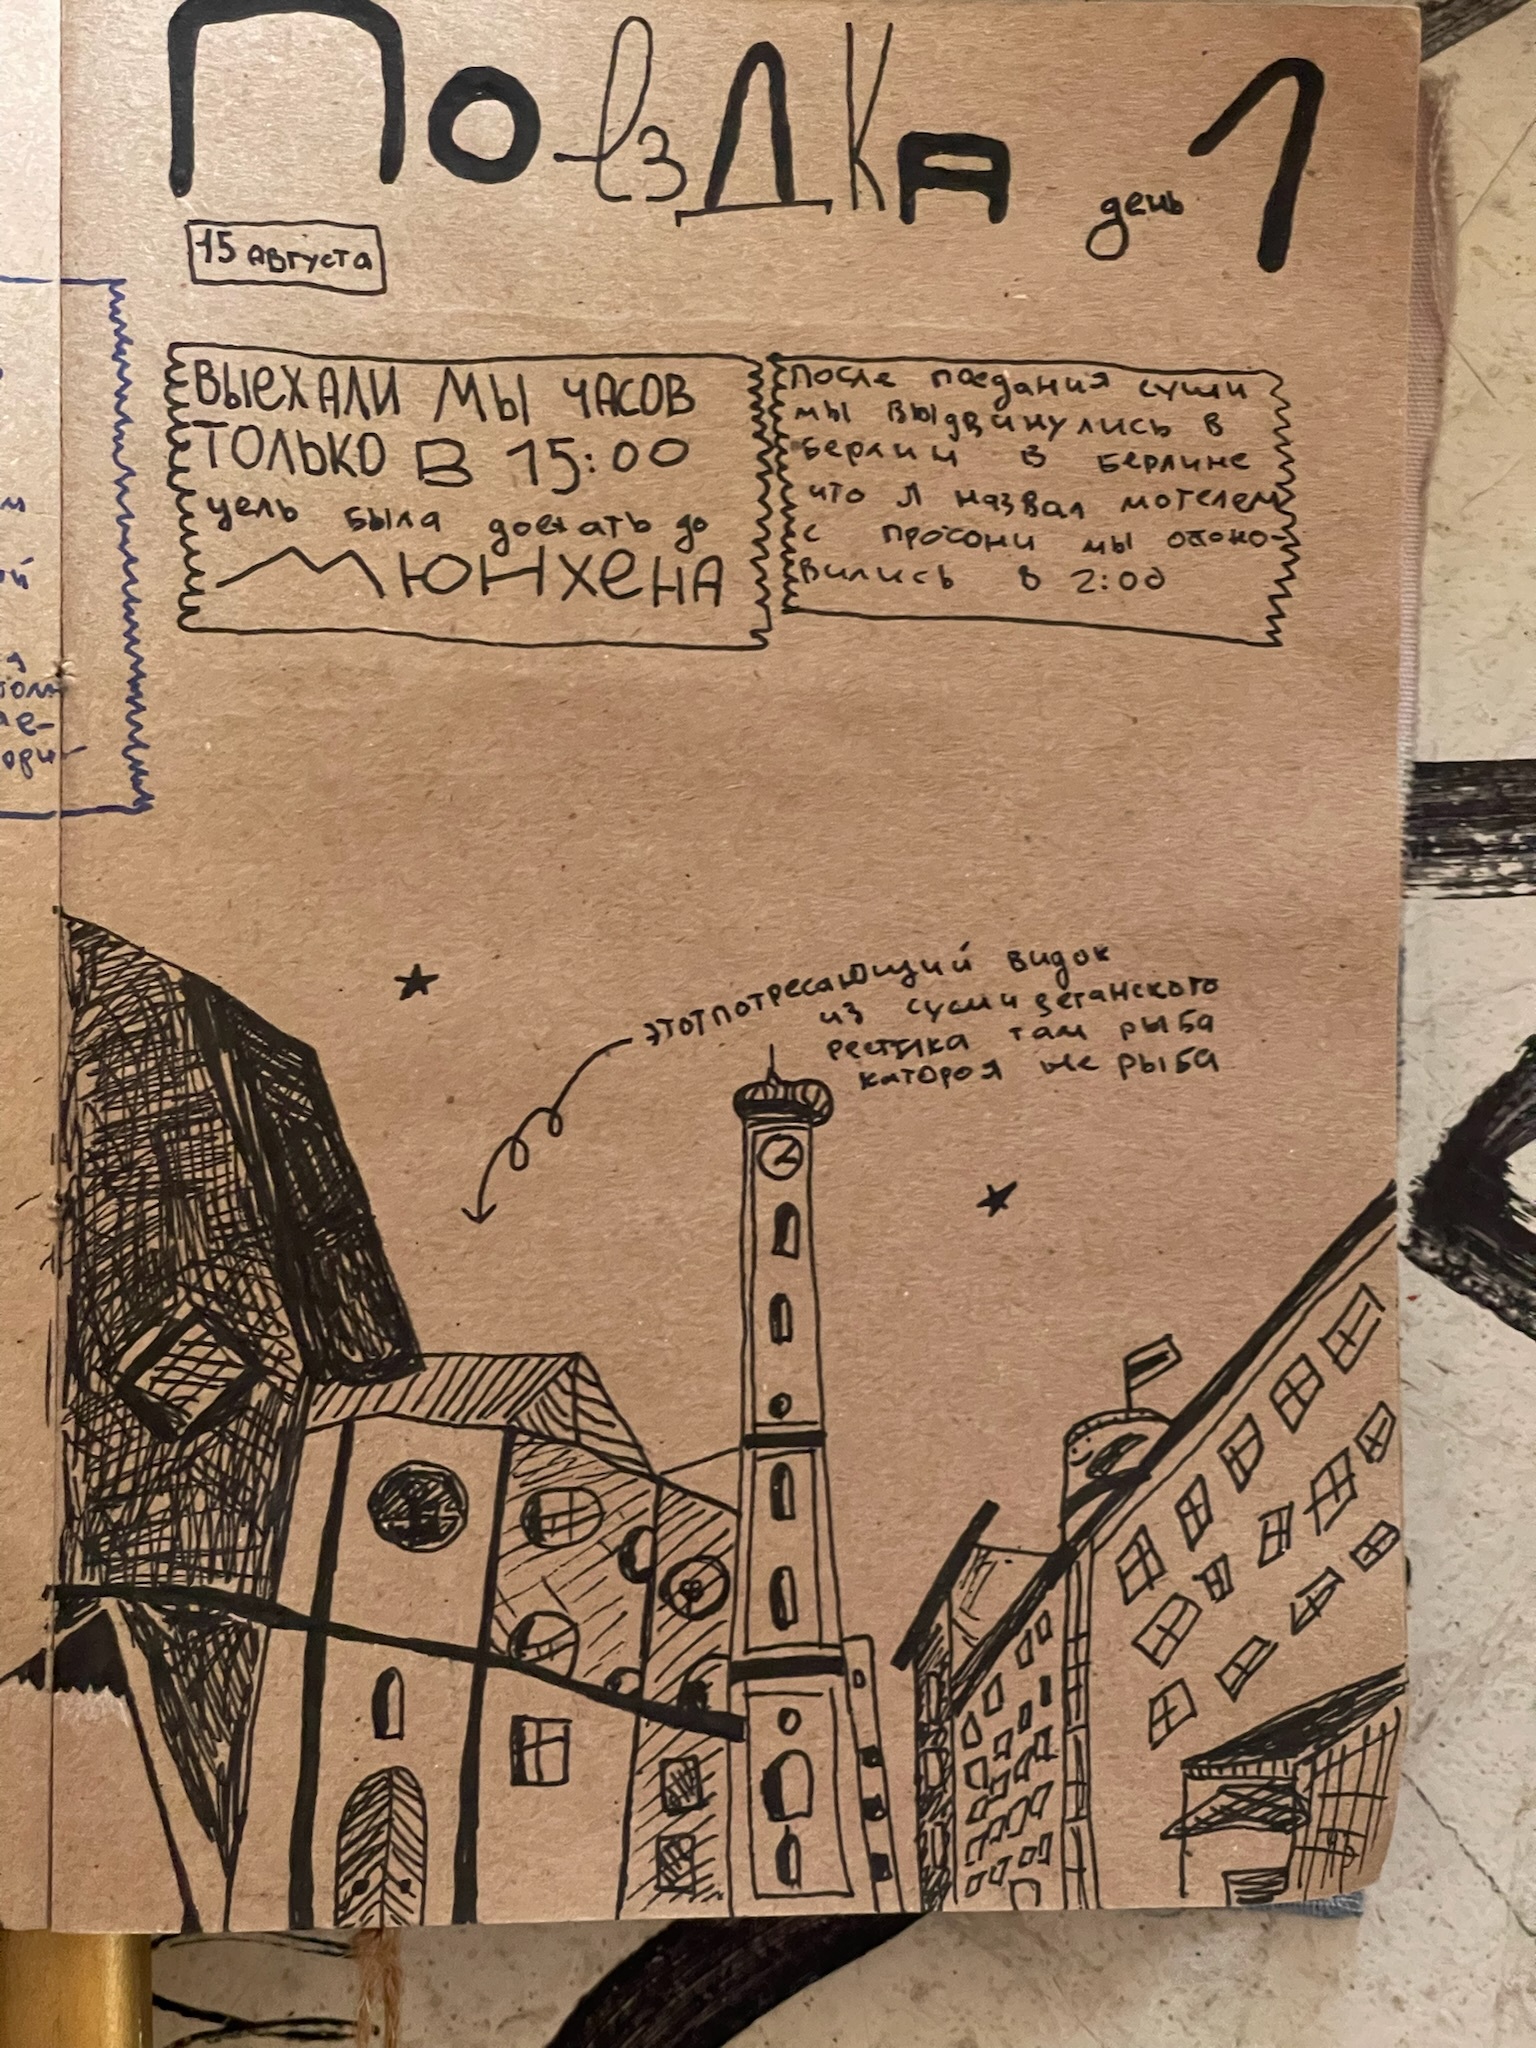 Поездка день 1
15 августа
Выехали мы часов
только в 15:00
цель была доехать до
Мюнхена
после поедания суши
мы выдвинулись в
берлин в берлине
что Л назвал мотелем
с просони мы остоно-
вились в 2:00
этот потресающий видок
из суши веганского
рестика там рыба
катороя не рыба
ой